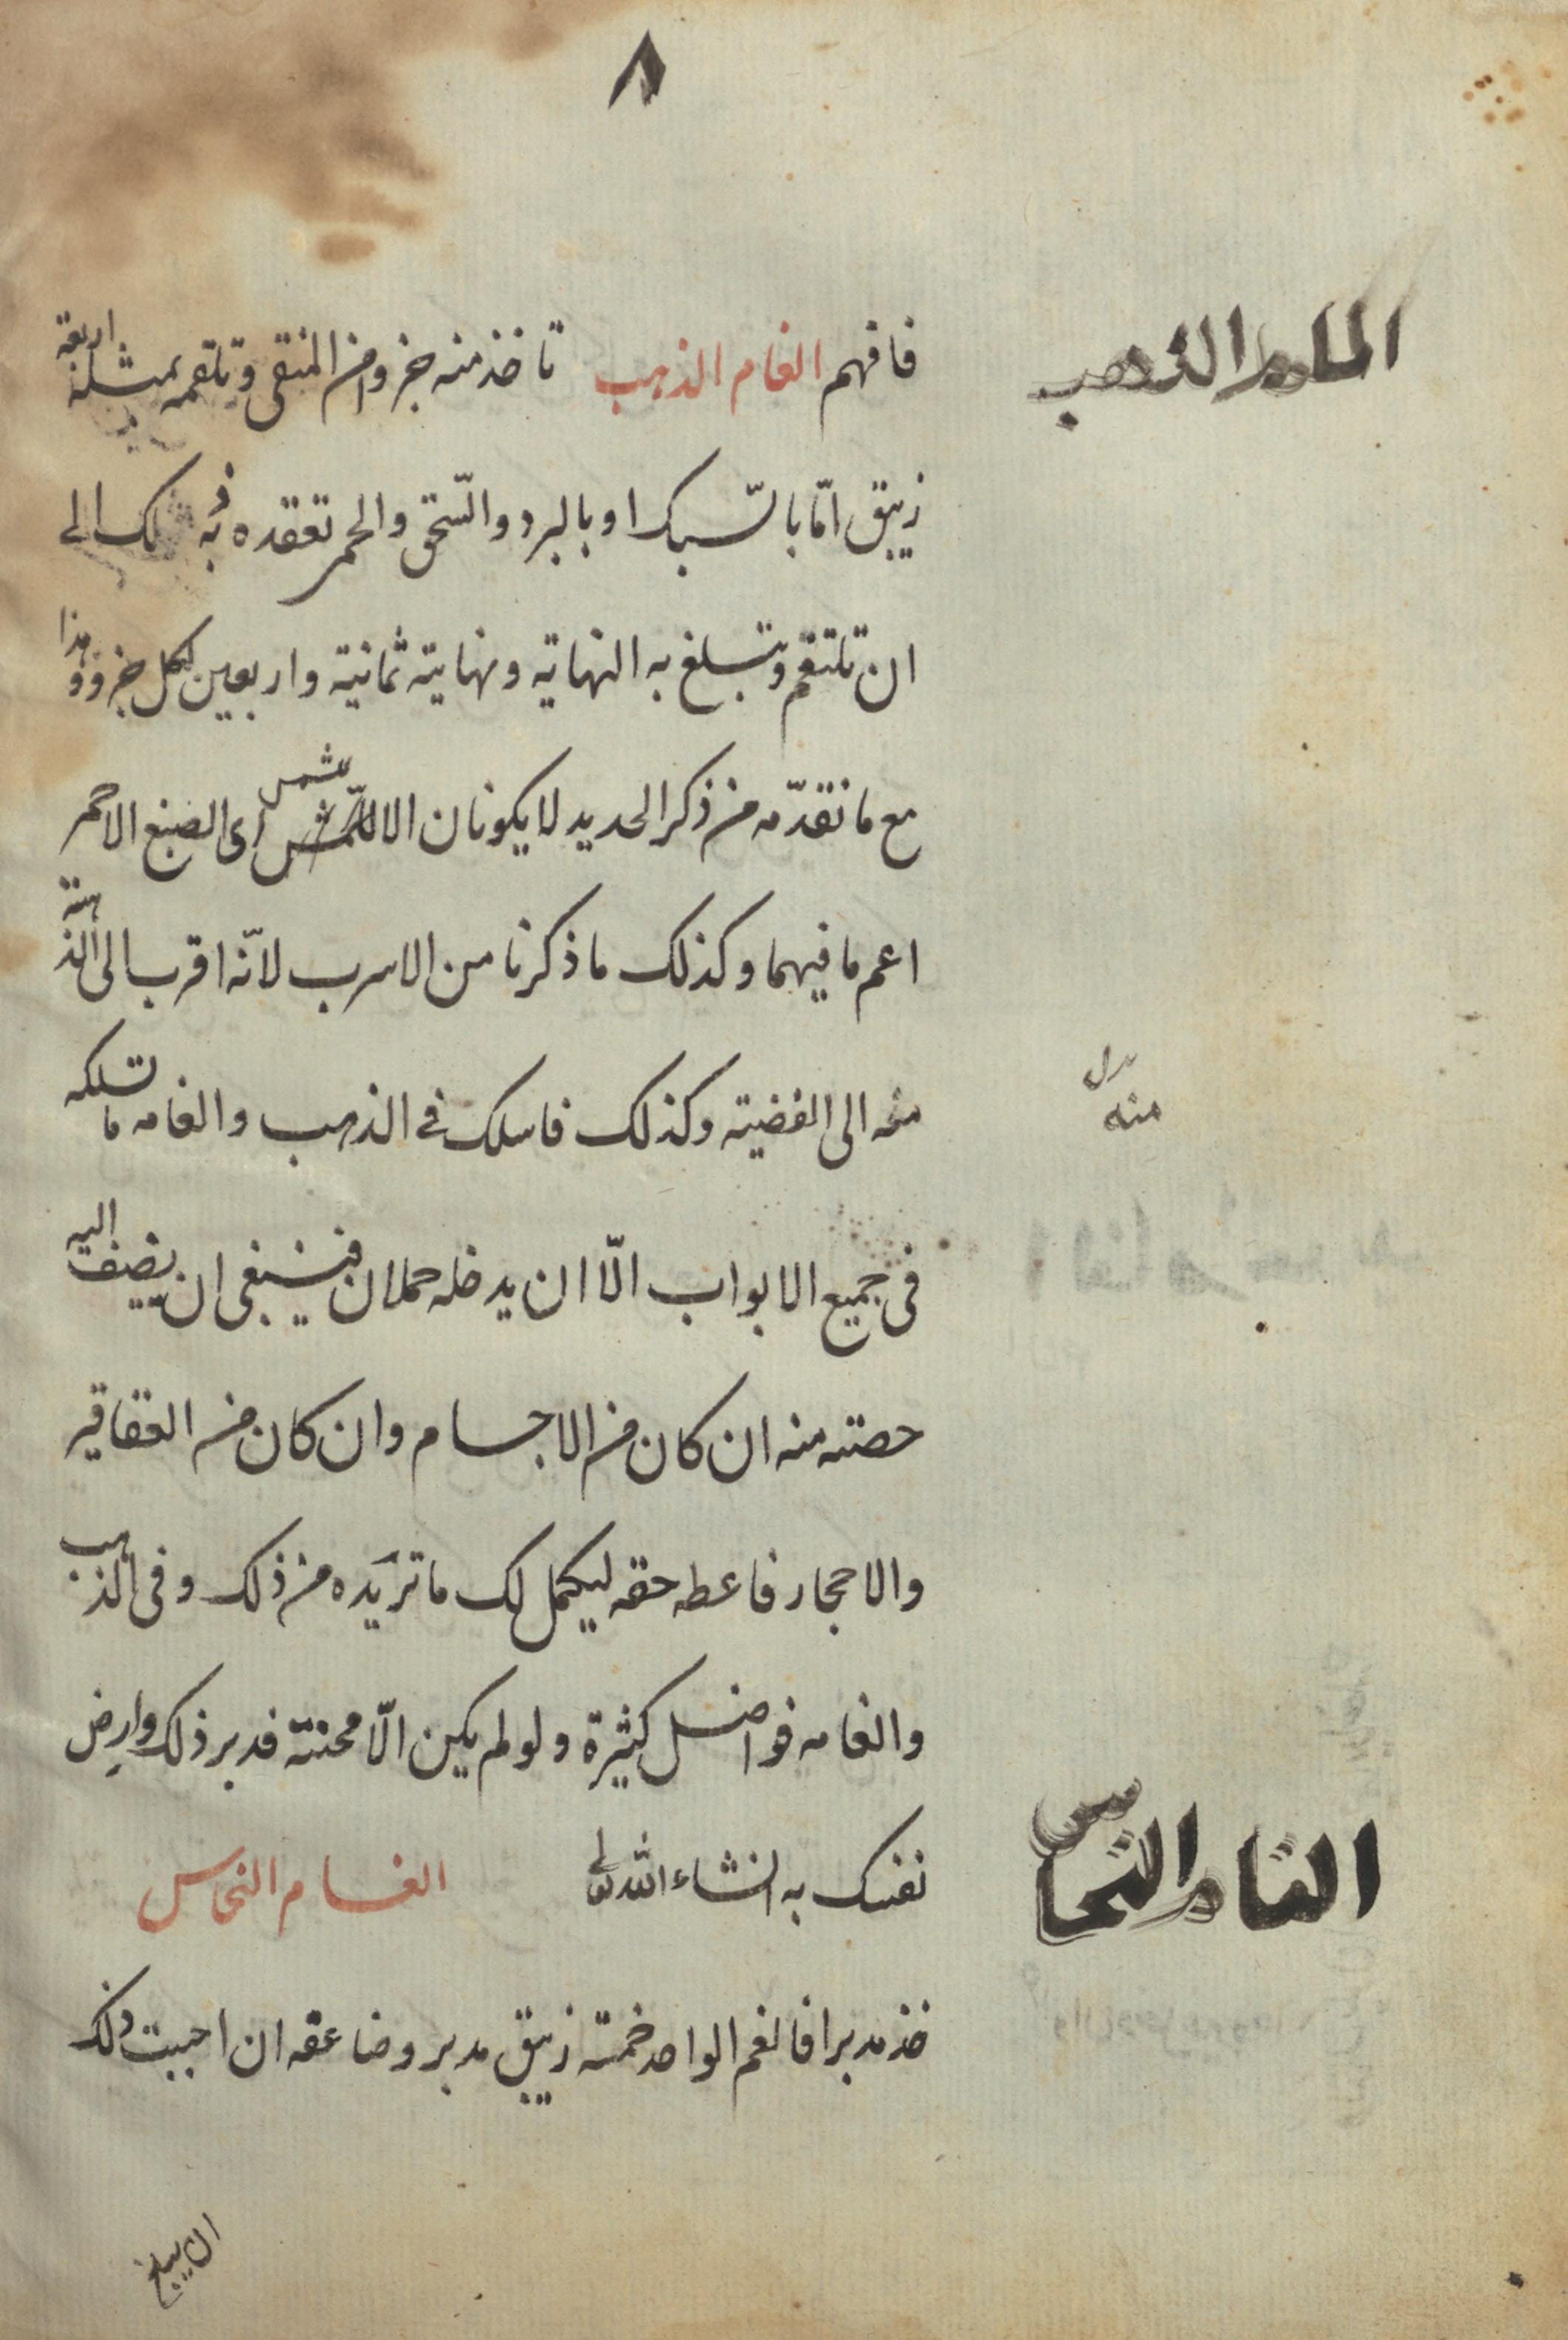 ٨
فافهم الغام الذهب تاخذ منه جزوا من المنقى وتلقمه بمثله اربعة
زيبق امّا بالسّبك او بالبرد والسّحق والحمر تعقده به ذلك الى
ان تلتقم وتبلغ به النهاية ونهايته ثمانية واربعين لكل جزو وهذا
مع ما نقدّمه من ذكر الحديد لا يكونان الا للشمس اى الصبغ الاحمر
اعم ما فيهما وكذلك ما ذكرنا من الاسرب لانّه اقرب الى الذهبية
منه الى الفضيته وكذلك فاسلك فى الذهب والغامه ما تسلكه
فى جميع الابواب الّا ان يدخله حملان فينبغى ان يضف اليه
حصته منه ان كان من الاجسام وان كان من العقاقير
والاحجار فاعطه حقه ليكمل لك ما تريَده من ذلك وفى الذهب
والغامه فواضل كثيرة ولو لم يكن الّا محنتة فدبر ذلك وارض
نفسك به انشاء الله تعالى الغام النحاس
خذ مدبرا فالغم الواحد خمسته زيبق مدبر وضاعفه ان احببت ذلك
ان يبلغ
الذهب
بدل
منه
الغام النحاس